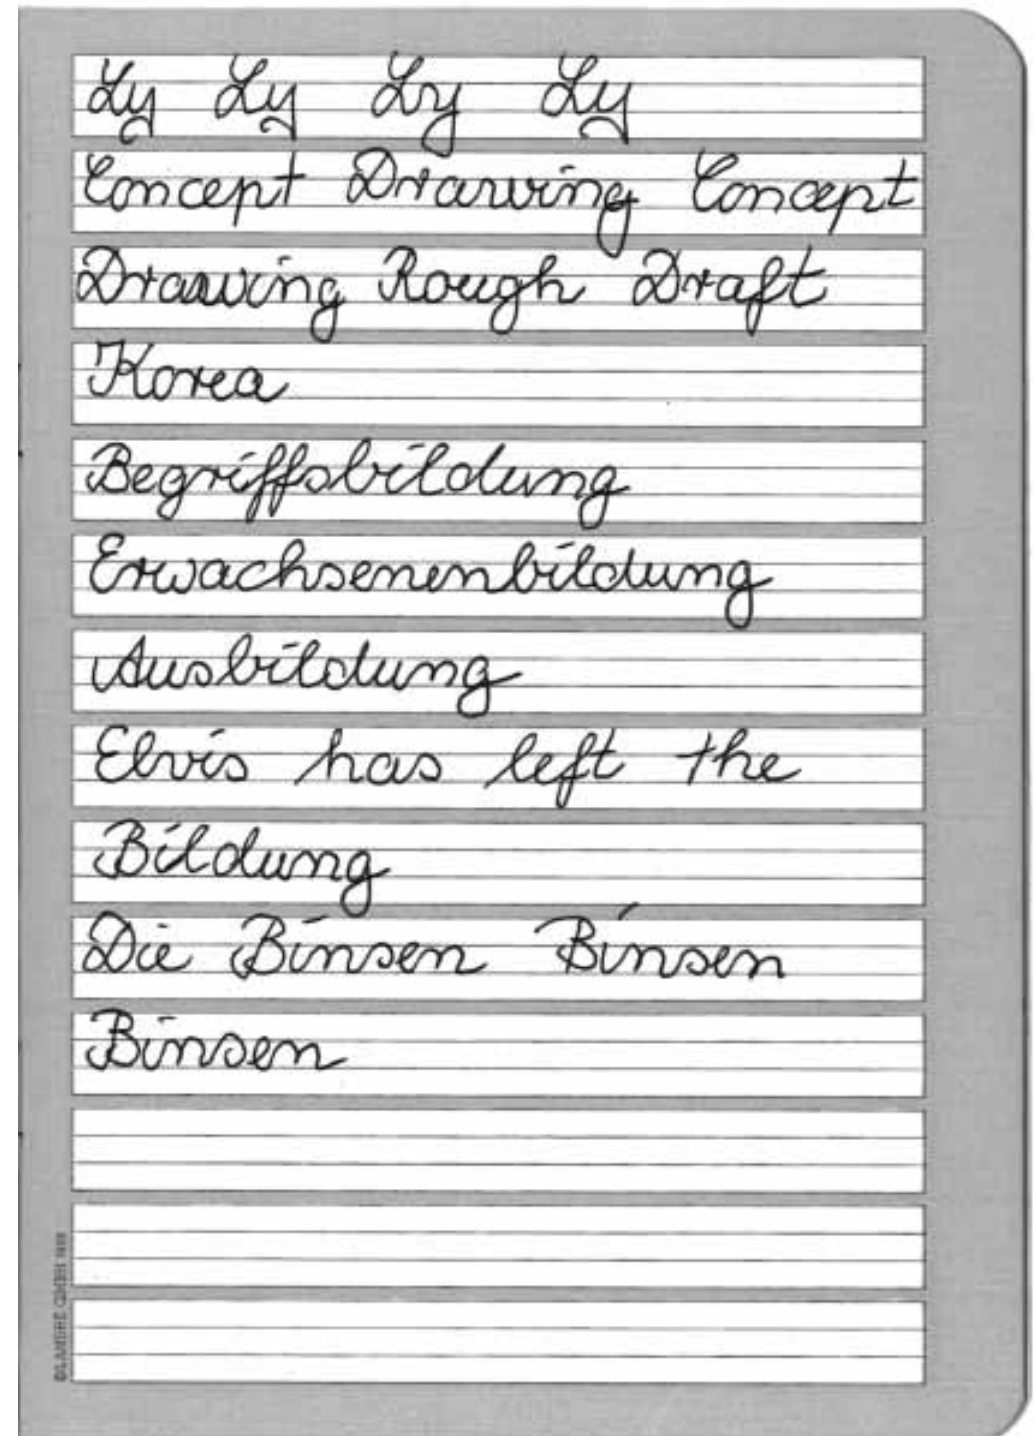 Ly Ly Ly Ly
Concept Drawing Concept
Drawing Rough Draft
Korea
Begriffsbildung
Erwachsenenbildung
Ausbildung
Elvis has left the
Bildung
Die Binsen Binsen
Binsen
GMBH